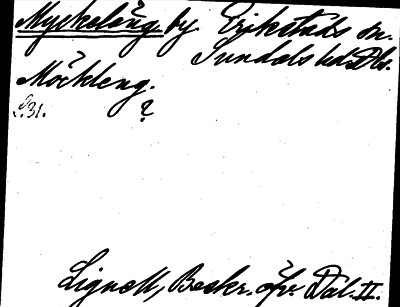 Myckeläng. by. Erikstads sn.
Sundals hd. Dls.
Möckleng.
L.31. ?
Lignell, Beskr. öfv. Dal. II.